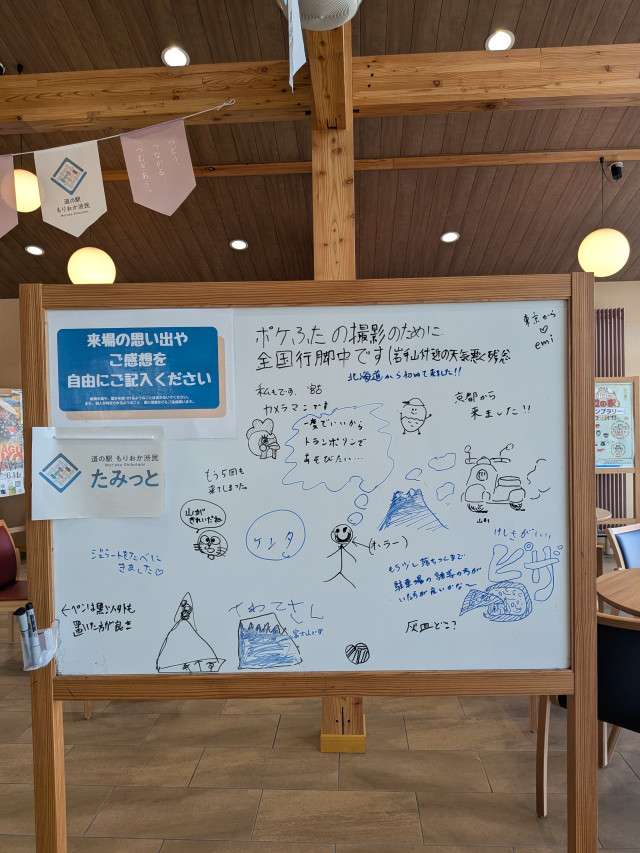 道の駅
もりおか渋民
つながる
来場の思い出や
ご感想を
自由にご記入ください
道の駅 もりおか渋民
たみっと
ポケふたの撮影のために
全国行脚中です(岩手山付近の天気悪く残念
北海道から初めて来ました!!
東京から
♡
emi
私もです。
カメラマンです
一度でいいから
トランポリンで
あそびたい…
京都から
来ました!!
もう5回も
来てしまった
山が
きれいだね
ケンタ
ジェラートをたべに
きました♡
けしきがいい
ピザ
もう少し落ちつくまで
駐車場の誘導の方が
いた方が良いかな~
←ペンは黒以外も
置いた方が良き
富士山いず
灰皿どこ?